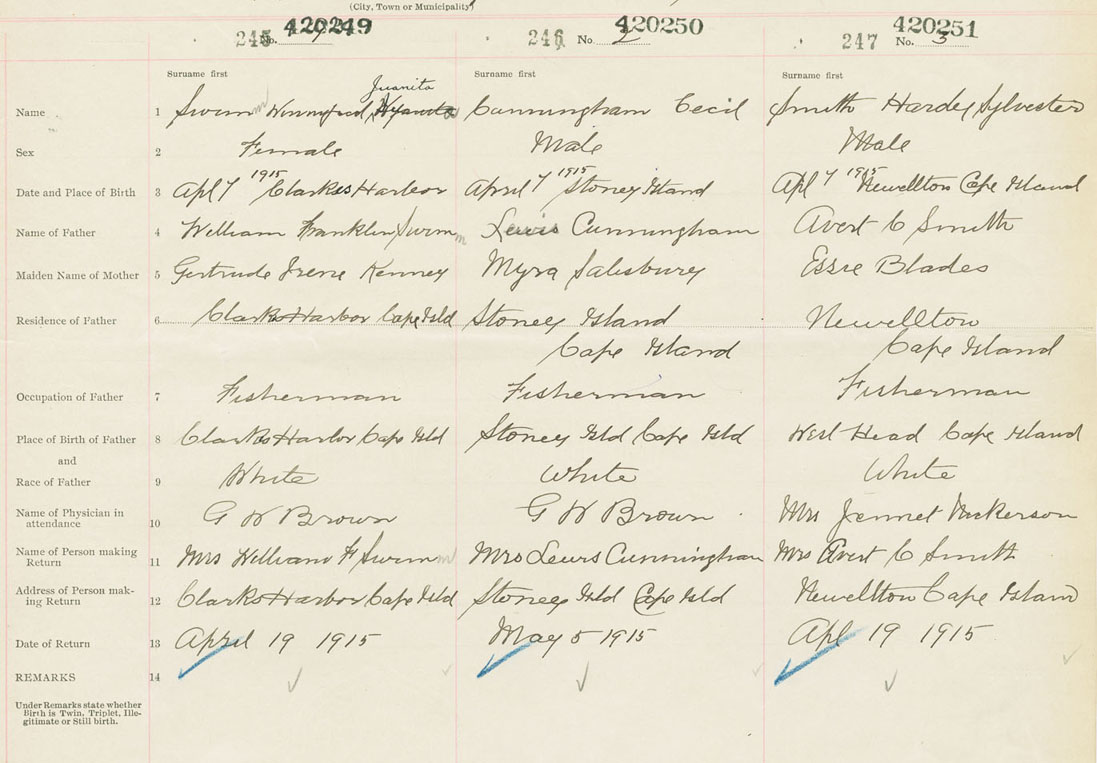 (City, Town or Municipality)
245 420249 246 420250 247 420251
No. 1 No. 2 No. 3
Surname first Surname first Surname first
Juanita
Name 1 Swimm Winnifred, Cunningham Cecil Smith Hardey Sylvester
Sex 2 Female Male Male
Date and Place of Birth 3 Apl 7 1915 Clarkes Harbor April 7 1915 Stoney Island Apl 7 1915 Newellton Cape Island
Name of Father 4 William Franklin Swimm Lewis Cunningham Avert C Smith
Maiden Name of Mother 5 Gertrude Irene Kenney Myra Salsbury Essie Blades
Residence of Father 6 Clarks Harbor Cape Isld Stoney Island Newellton
Cape Island Cape Island
Occupation of Father 7 Fisherman Fisherman Fisherman
Place of Birth of Father 8 Clarks Harbor Cape Isld Stoney Isld Cape Isld West Head Cape Island
and
Race of Father 9 White White White
Name of Physician in
attendance 10 G W Brown G W Brown Mrs Jennet Nickerson
Name of Person making
Return 11 Mrs William F Swimm Mrs Lewis Cunningham Mrs Avert C Smith
Address of Person mak-
ing Return 12 Clarks Harbor Cape Isld Stoney Isld Cape Isld Newellton Cape Island
Date of Return 13 April 19 1915 May 5 1915 Apl 19 1915
REMARKS 14
Under Remarks state whether
Birth is Twin, Triplet, Ille-
gitimate or Still birth.